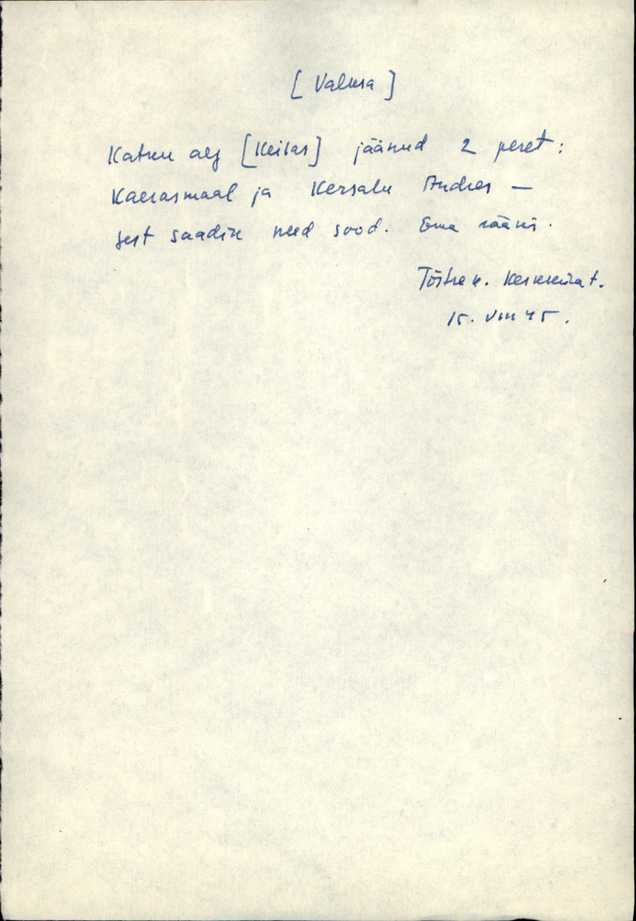 [Valusa]
Katku aeg [Keilas] jäänud 2 peret:
Kaerasmaal ja Kersalu Andres –
sest saadik need sood. Ema rääkis.
Tõitse k.
15. VIII 45.